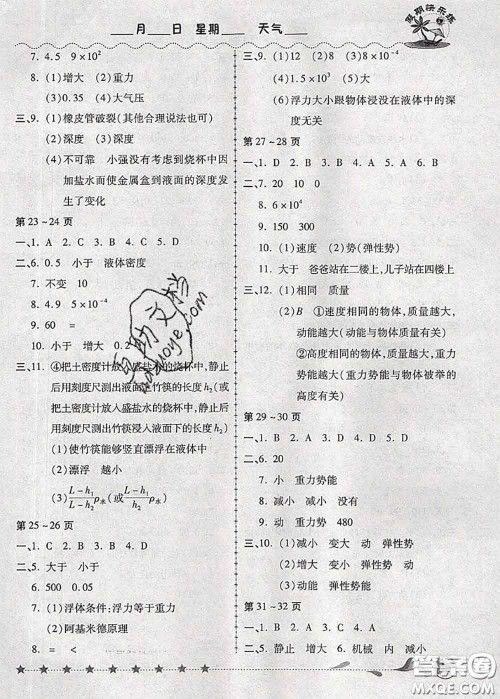 ____月____日 星期____ 天气____
假期快乐练
7. 4.5 9×10⁻⁴
8. (1)增大 (2)重力
(3)0.35 (4)大气压
三、9. (1)橡皮管破裂(其他合理说法也可)
(2)深度 (3)深度
(4)不可靠 小强没有考虑到烧杯中
加盐水而使金属盒到液面的深度发
生了变化
第23~24页
一、1. A 2. C 3. C 4. C 5. D
二、6. 0.5 小于 液体密度
7. 不变 10
8. 4.9 5×10⁻⁴
9. 60 =
10. 小于 增大 0.2
三、11. ④把土密度计放入盛盐水的烧杯中,静止
后用刻度尺测出液面至竹筷的长度h₂(或
把土密度计放人盛盐水的烧杯中,静止后
用刻度尺测出竹筷浸入液面下的长度h₂)
(1)使竹筷能够竖直漂浮在液体中
(2)漂浮 越小
第25~26页
一、1. D 2. B 3. C 4. A
二、5. 大于 小于
6. 500 0.05
7. (1)浮体条件:浮力等于重力
(2)阿基米德原理
8. = <
三、9. (1)12 (2)8 (3)8×10⁻⁴
(6)浮力大小跟物体浸没在液体中的深
度无关
第27~28页
一、1. D 2. B 3. A 4. A 5. D 6. A
二、7. 20 10 0
8. 6×10⁴
9. 150 300
10. (1)速度 (2)势(弹性势)
11. 大于 爸爸站在二楼上,儿子站在四楼上
三、12. (1)相同 质量
(2)B ①速度相同的物体,质量越大,
动能越大(动能与物体质量有关)
②高度相同的物体,质量越大,重力势
能越大(重力势能与物体被举的高度
有关)
第29~30页
一、1. D 2. B 3. C 4. D 5. D
二、6. 20
7. 小 重力势能
8. 减小 减小 不变
9. 动 重力势 480
三、10. (1)减小 变大 动 弹性势
(2)减小 增大 动 弹性势
(3)增大 减小 弹性势 动
第31~32页
一、1. D 2. A 3. A 4. C
二、5. 静止 增大 6. 机械 内 减小
答案圈
MXQE.COM